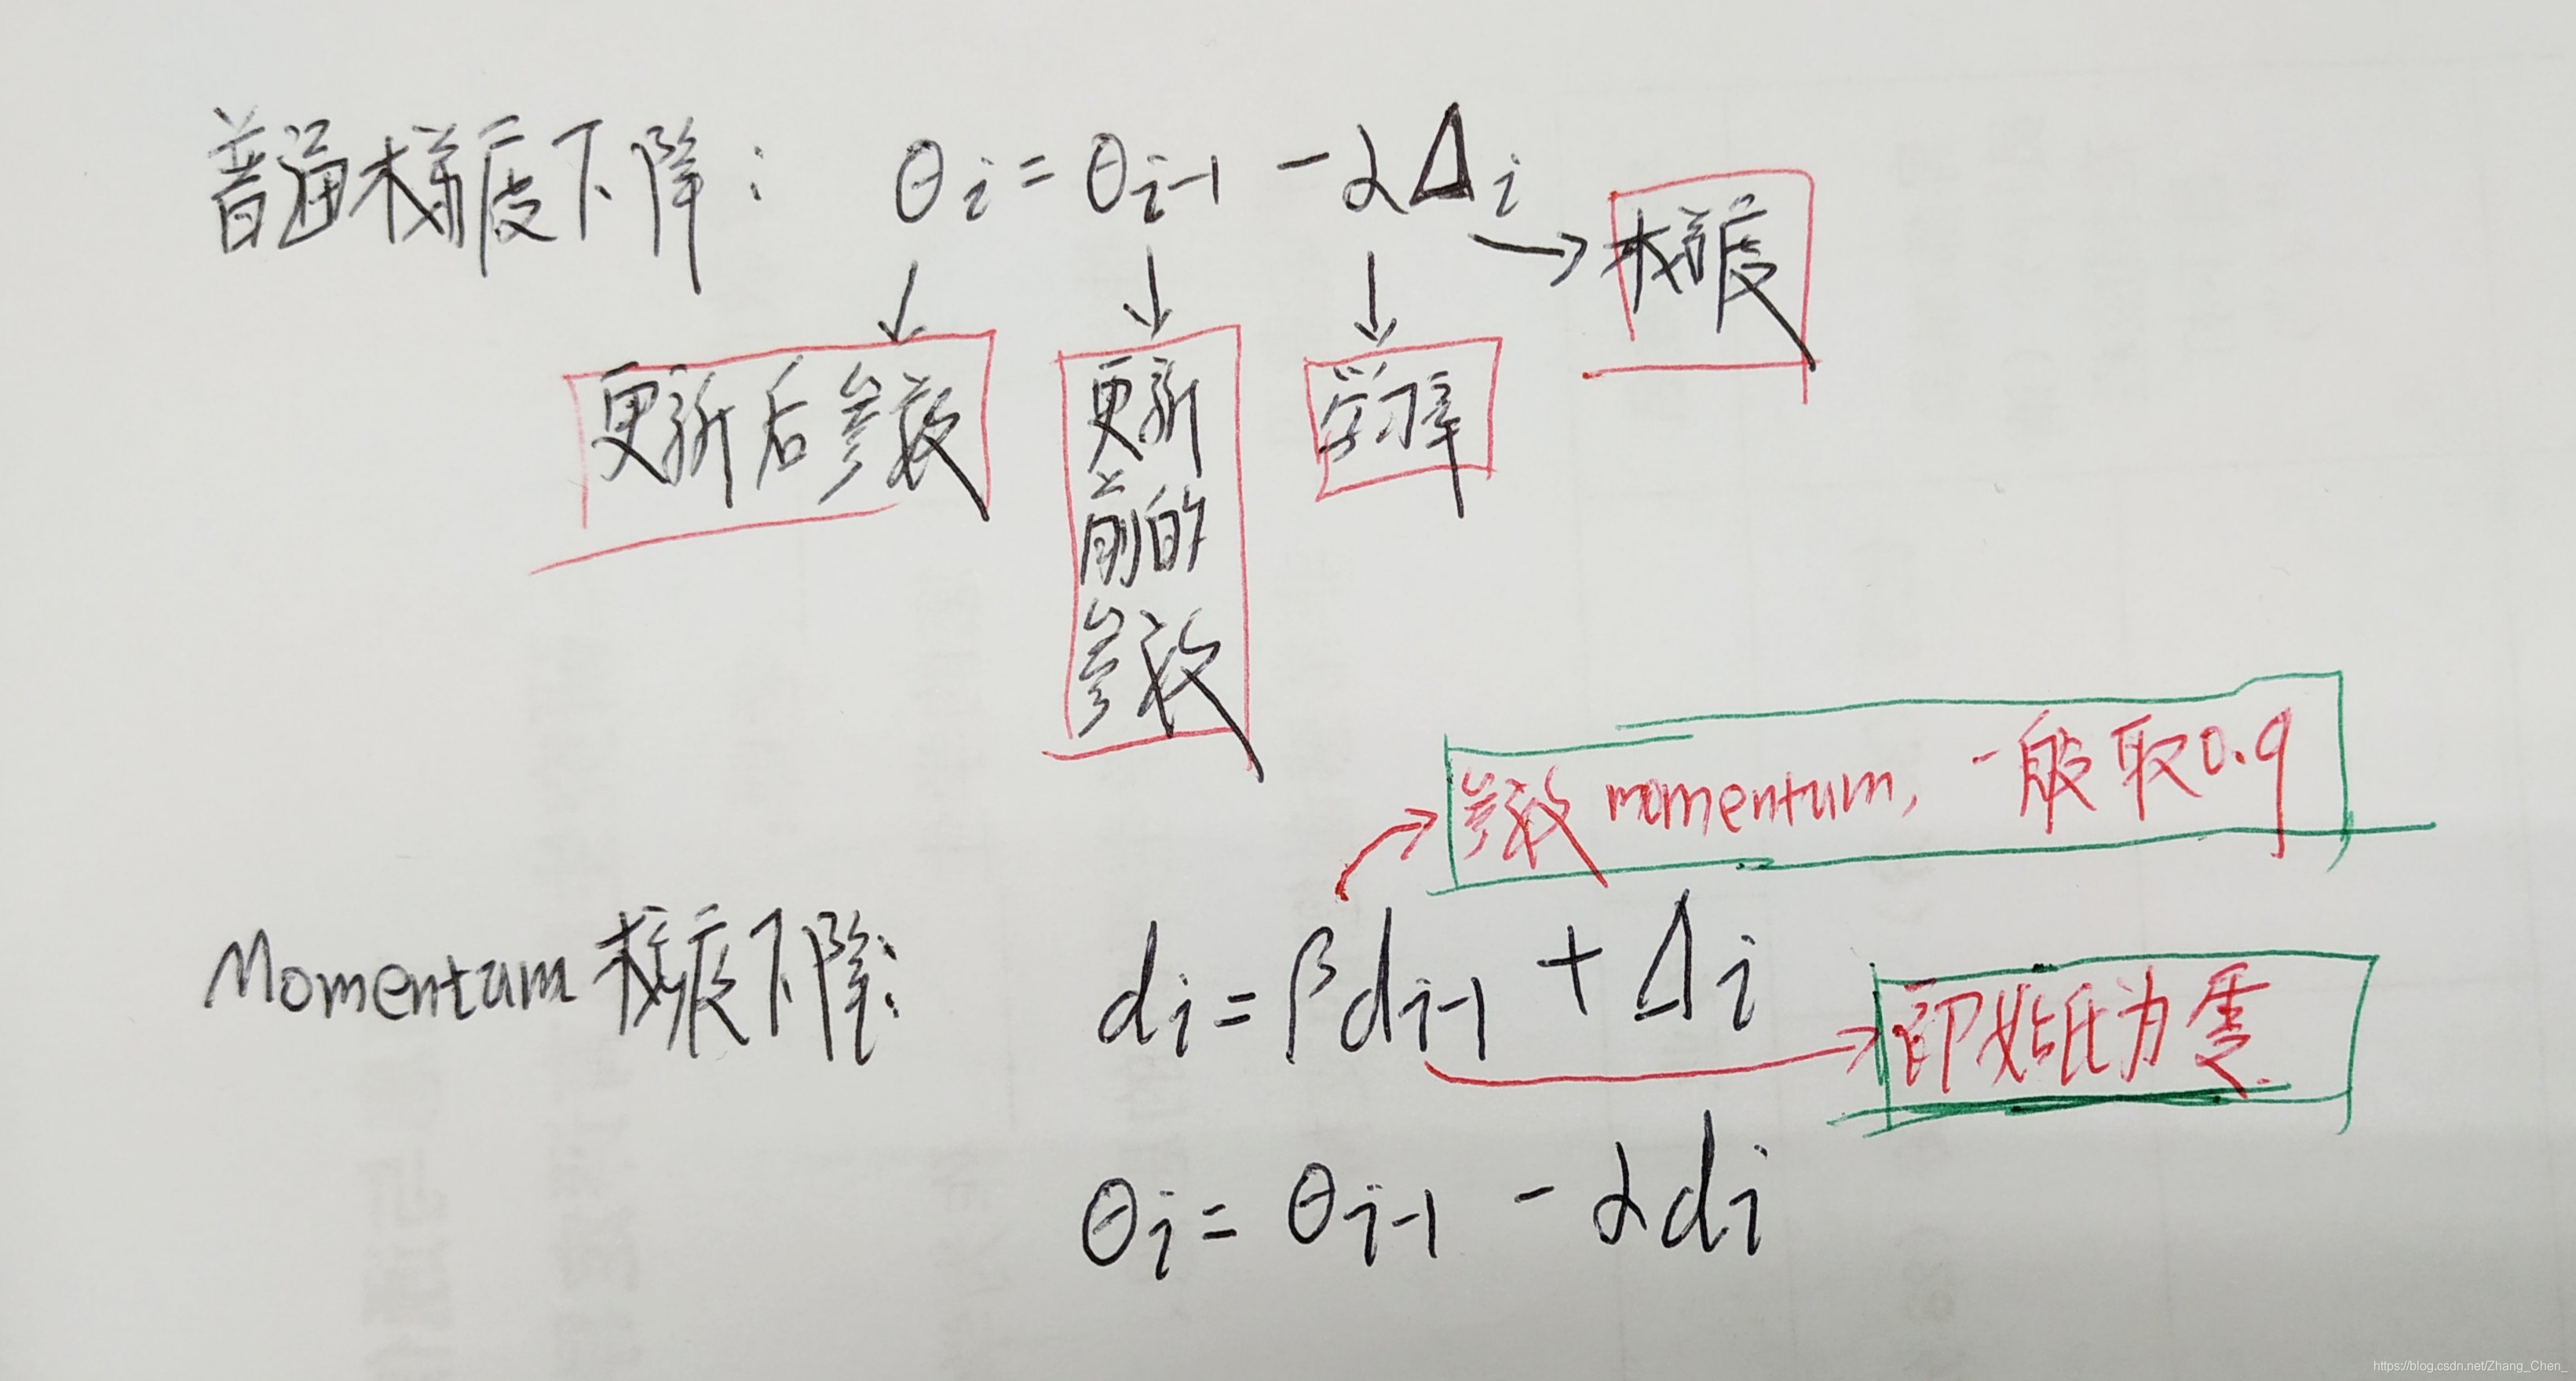 普通梯度下降: θi = θi-1 - αΔi
梯度
更新后参数
更新
前的
参数
学习率
参数 momentum, 一般取0.9
Momentum 梯度下降: di = βdi-1 + Δi
始氏为零
θi = θi-1 - αdi
https://blog.csdn.net/Zhang_Chen_